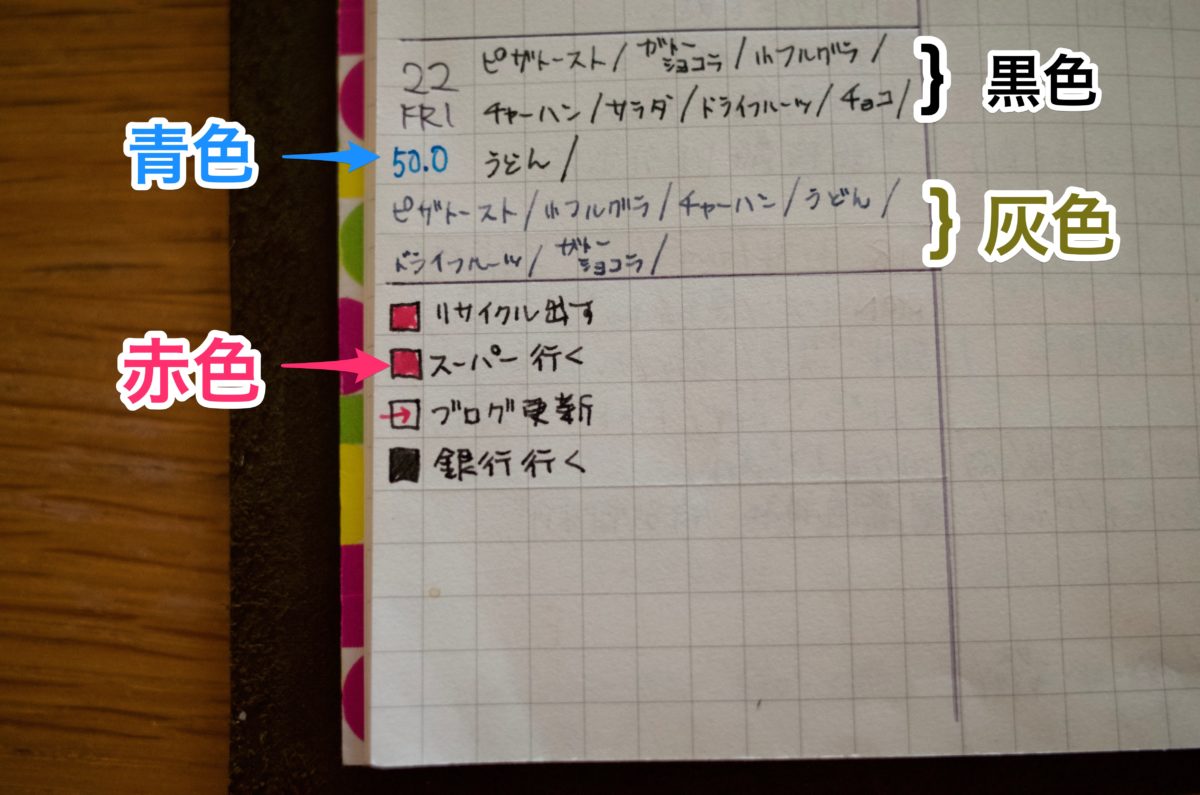 22 ピザトースト/ガトーショコラ/小フルグラ/
FRI チャーハン/サラダ/ドライフルーツ/チョコ/
} 黒色
青色
50.0 うどん/
ピザトースト/小フルグラ/チャーハン/うどん/
ドライフルーツ/ガトーショコラ/
} 灰色
リサイクル出す
赤色
スーパー行く
→ ブログ更新
銀行行く